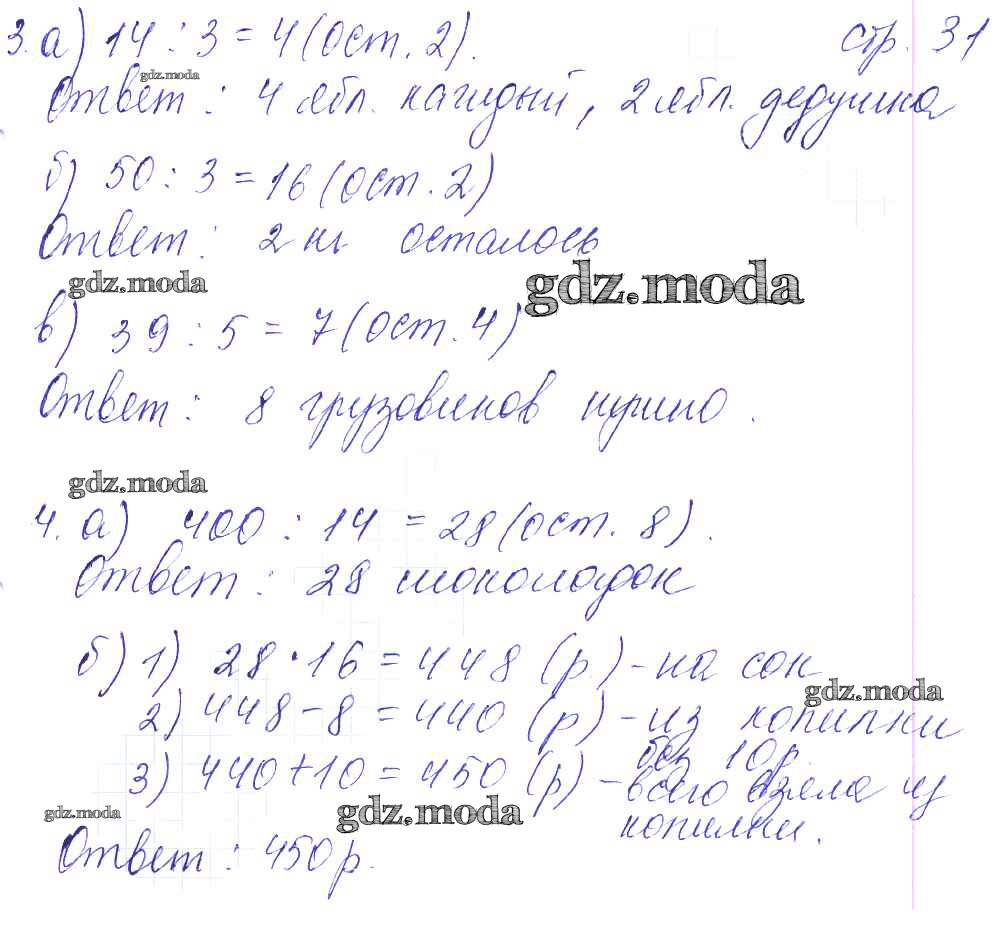 3. а) 14 : 3 = 4 (ост. 2). стр. 31
gdz.moda
Ответ : 4 ябл. каждый, 2 ябл. дедушка
б) 50 : 3 = 16 (ост. 2)
Ответ : 2 кг осталось
gdz.moda
gdz.moda
в) 39 : 5 = 7 (ост. 4)
Ответ : 8 грузовиков нужно .
gdz.moda
4. а) 400 : 14 = 28 (ост. 8) .
Ответ : 28 шоколадок
б) 1) 28 · 16 = 448 (р.) - на сок
gdz.moda
2) 448 - 8 = 440 (р) - из копилки
без 10 р.
3) 440 + 10 = 450 (р) - всего взяла из
копилки.
gdz.moda
gdz.moda
Ответ : 450 р.